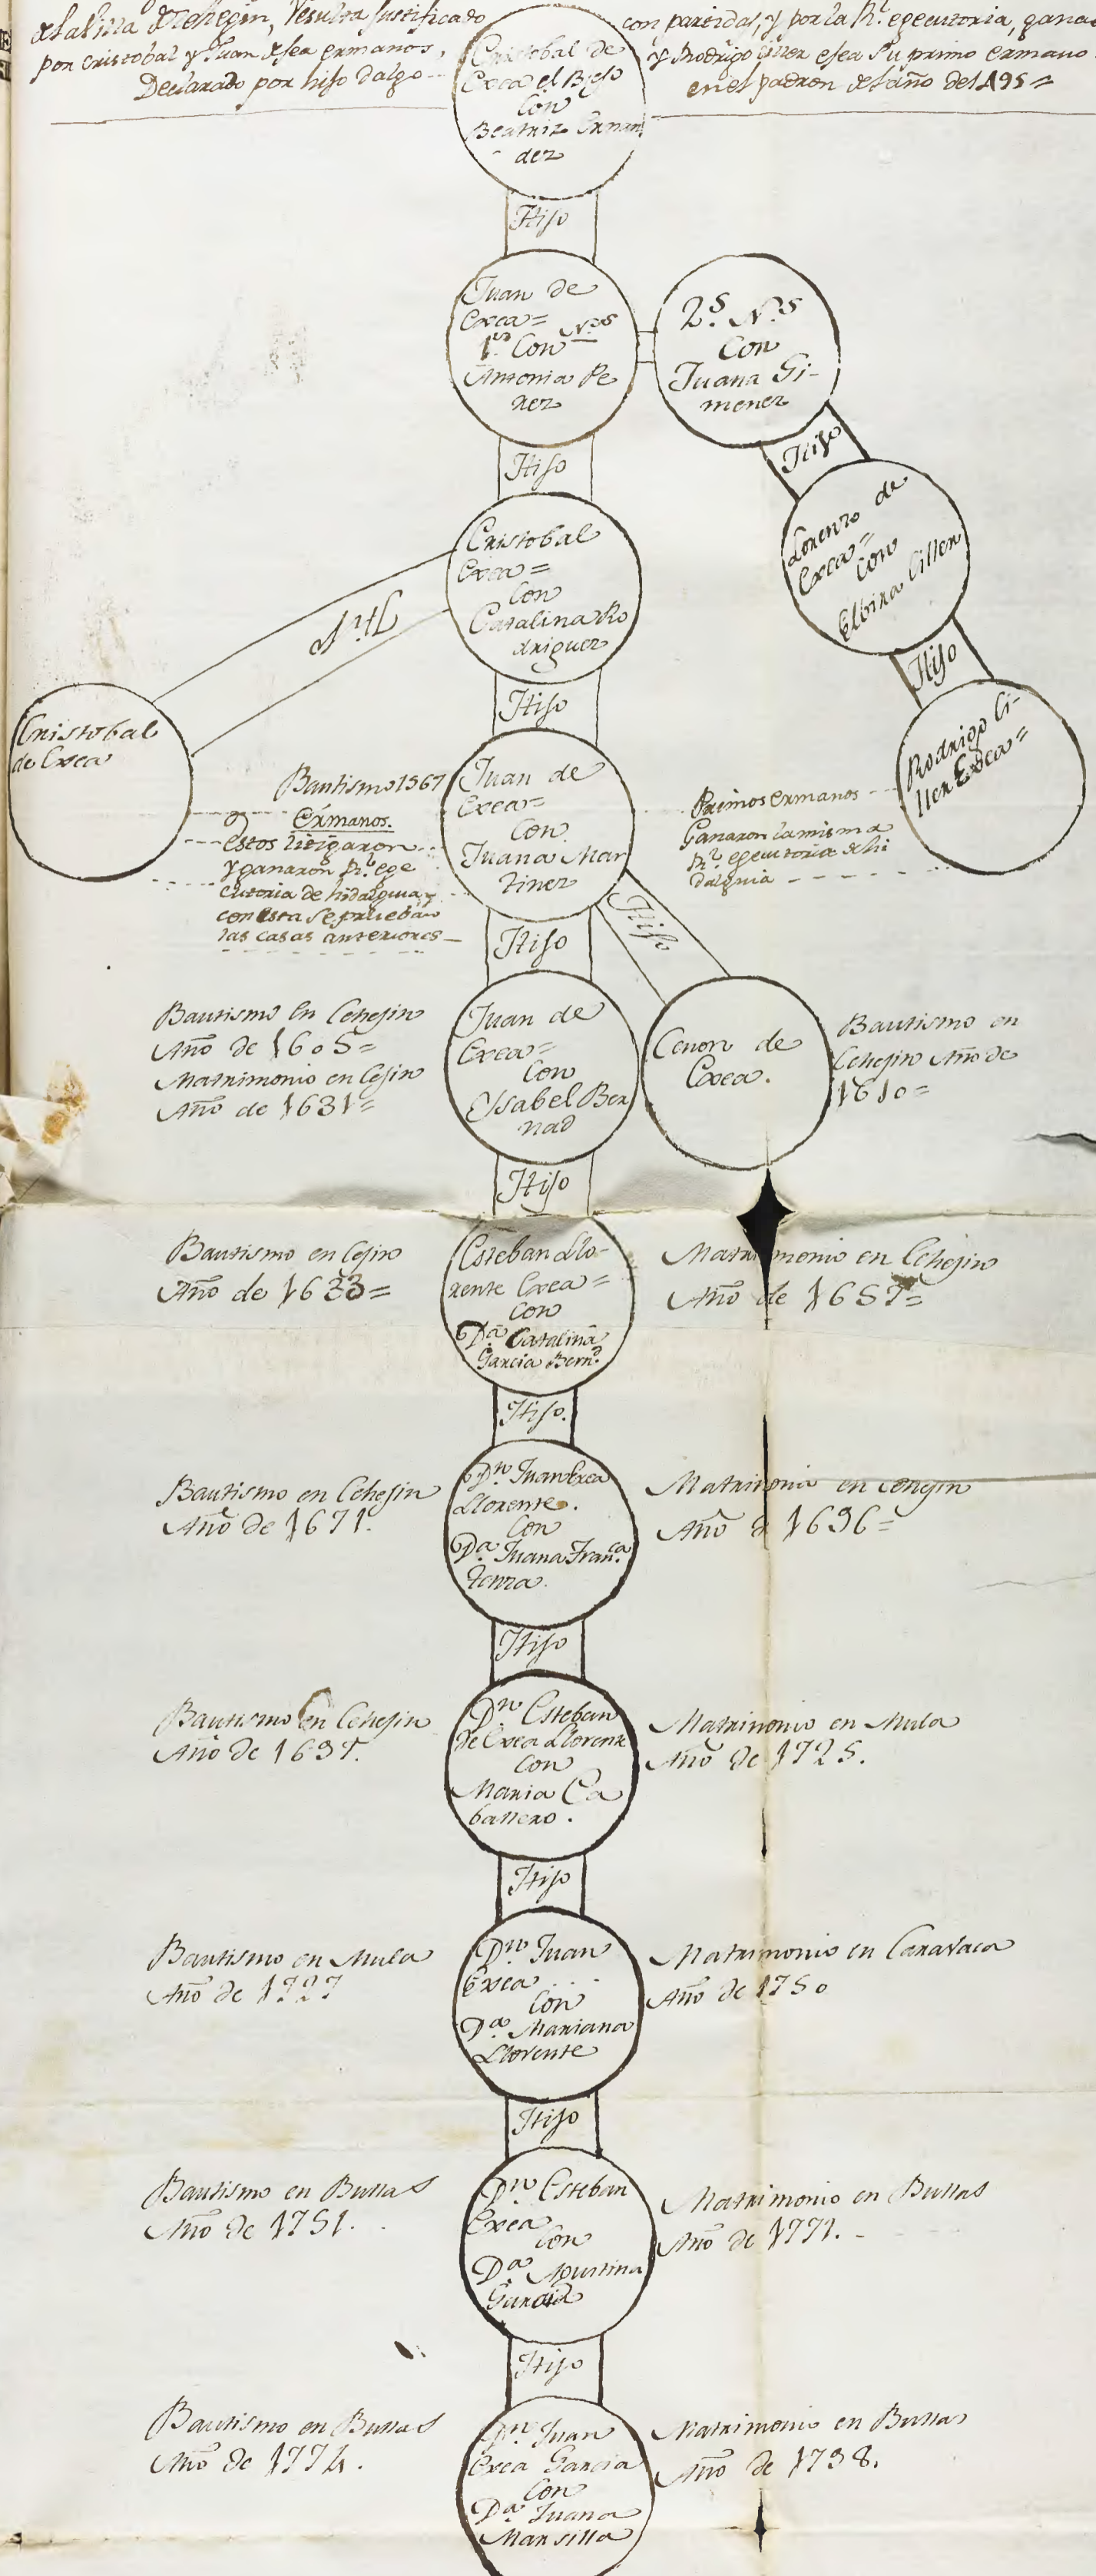 de la Villa de Zehegin, resulta justificado
por cristobal y Juan de sea ermanos,
Declarado por hijo dalgo
con partidas, y por la Rl. egecutoria, gana
y Rodrigo Ciller esea su primo ermano
en el padron del año de 1495=
Cristobal de
Exea el Biejo
Con
Beatriz Ernan
dez
Hijo
Juan de
Exea=
1as. Con Nas
Antonia Pe
rez
2s. Nas
Con
Juana Gi-
menez
Hijo
Hijo
Cristobal
Exea=
Con
Catalina Ro
driguez
Lorenzo de
Exea=
Con
Elbira Ciller
Hijo
Hijo
Hijo
Cristobal
de Exea
Bautismo 1567
Ermanos.
estos litigaron
y ganaron Rl. ege
cutoria de hidalguia y
con esta se prueban
las casas anteriores
Juan de
Exea=
Con
Juana Mar
tinez
Primos ermanos
Ganaron la misma
Rl. egecutoria de hi
dalguia
Rodrigo Ci-
ller Exea=
Hijo
Hijo
Bautismo en Cehejin
Año de 1605=
Matrimonio en Cejin
Año de 1631=
Juan de
Exea=
Con
Essabel Ber
nad
Cenon de
Exea.
Bautismo en
Cehejin Año de
1610=
Hijo
Bautismo en Cejin
Año de 1633=
Esteban Llo-
rente Exea=
Con
Da. Catalina
Garcia Bernd.
Matrimonio en Cehejin
Año de 1657=
Hijo.
Bautismo en Cehejin
Año de 1671.
Dn. Juan Exea
Llorente.
Con
Da. Juana Franca.
Matrimonio en cehejin
Año de 1696=
Hijo
Bautismo en Cehejin
Año de 1697.
Dn. Esteban
de Exea Llorente
Con
Maria Ca
ballero.
Matrimonio en Mula
Año de 1725.
Hijo
Bautismo en Mula
Año de 1727
Dn. Juan
Exea
Con
Da. Mariana
Llorente
Matrimonio en Caravaca
Año de 1750
Hijo
Bautismo en Bullas
Año de 1751.
Dn. Esteban
Exea
Con
Da. Agustina
Garcia
Matrimonio en Bullas
Año de 1771.
Hijo
Bautismo en Bullas
Año de 1774.
Dn. Juan
Exea Garcia
Con
Da. Juana
Mansilla
Matrimonio en Bullas
Año de 1798.